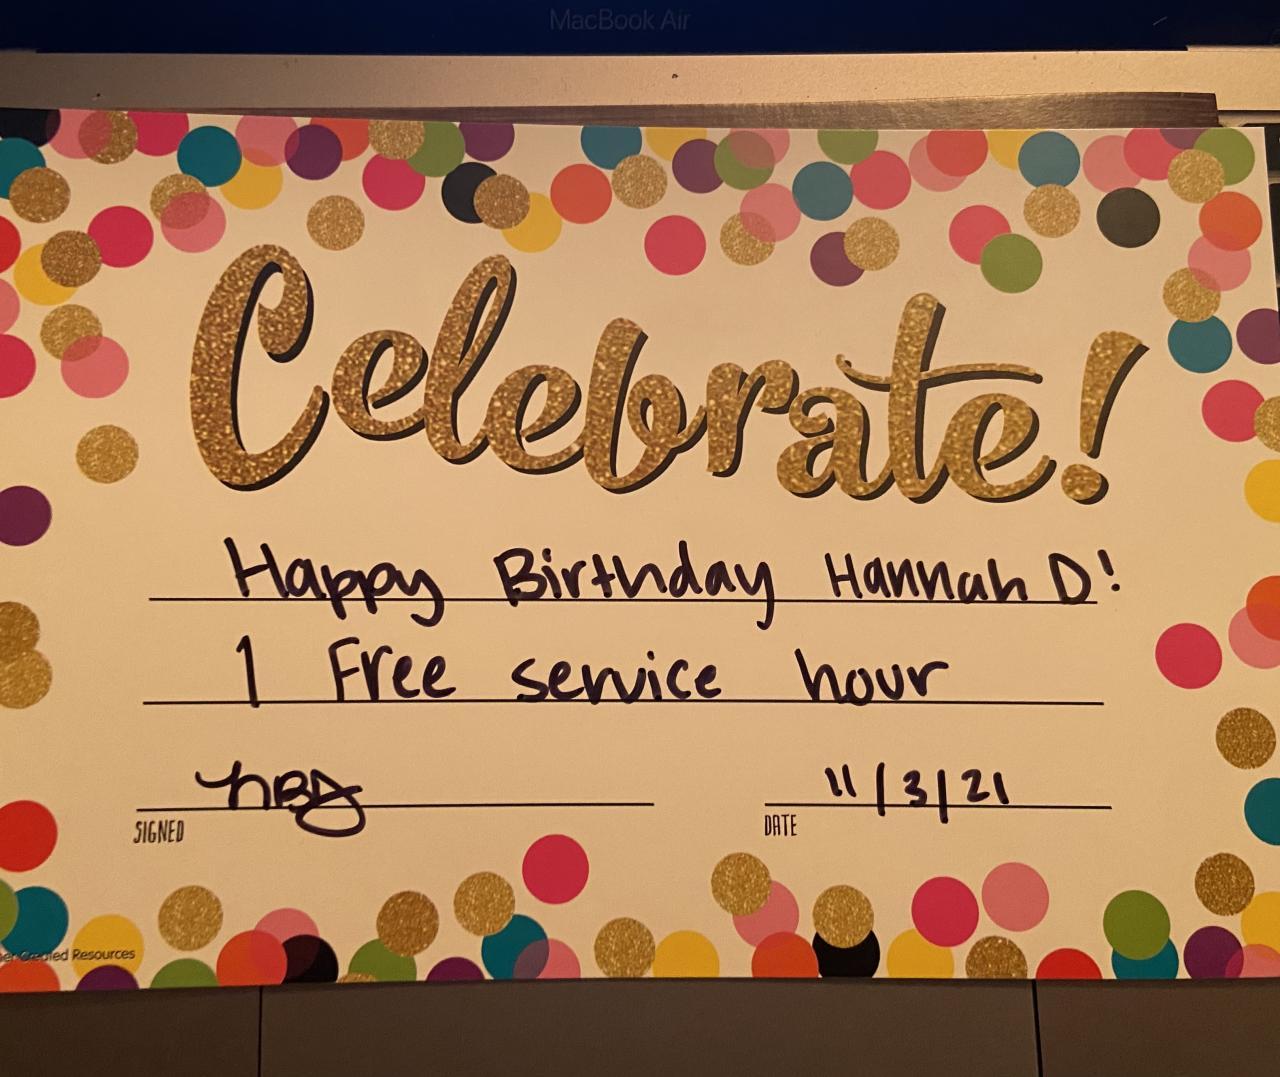 MacBook Air
Celebrate!
Happy Birthday Hannah D!
1 Free service hour
11/3/21
SIGNED
DATE
Created Resources